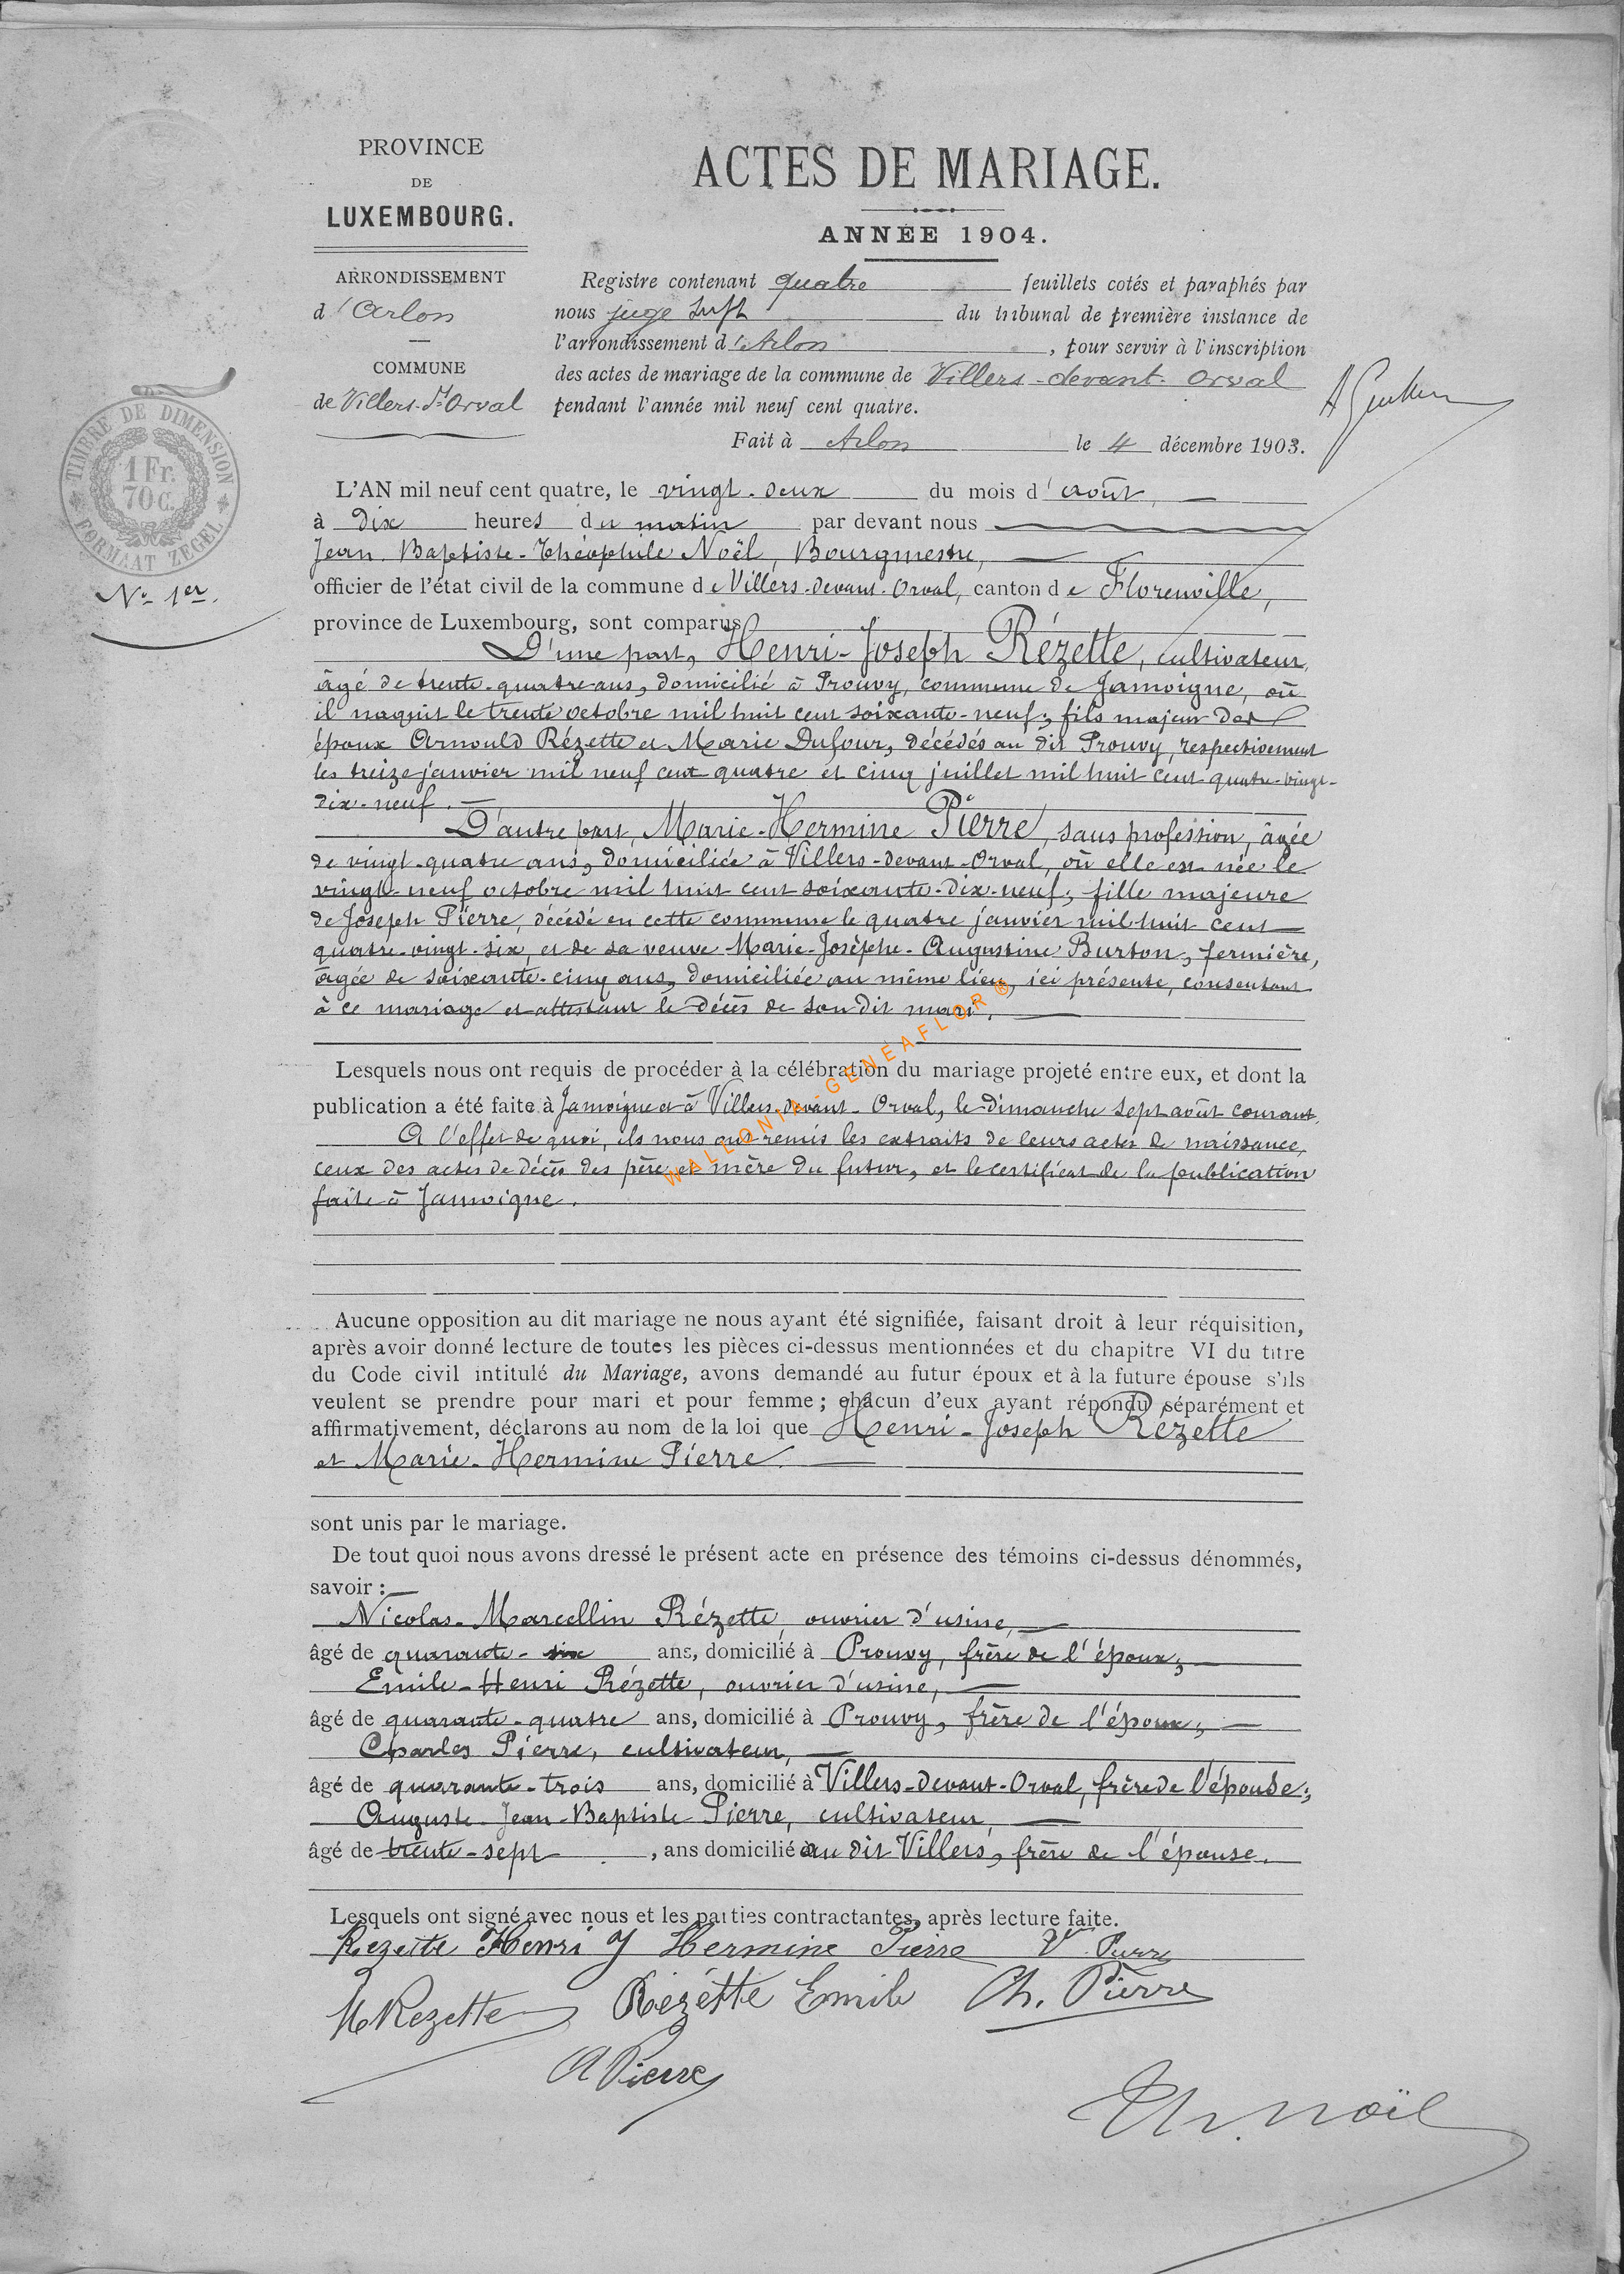 PROVINCE
DE
LUXEMBOURG.
ARRONDISSEMENT
d'Arlon
COMMUNE
de Villers-dt-Orval
ACTES DE MARIAGE.
ANNÉE 1904.
Registre contenant quatre feuillets cotés et paraphés par
nous juge suppt du tribunal de première instance de
l'arrondissement d'Arlon, pour servir à l'inscription
des actes de mariage de la commune de Villers-devant-Orval
pendant l'année mil neuf cent quatre.
Fait à Arlon le 4 décembre 1903.
TIMBRE DE DIMENSION
1 Fr.
70 C.
FORMAAT ZEGEL
No 1er.
L'AN mil neuf cent quatre, le vingt-deux du mois d'août,
à dix heures du matin par devant nous
Jean-Baptiste-Théophile Noël, Bourgmestre,
officier de l'état civil de la commune de Villers-devant-Orval, canton de Florenville,
province de Luxembourg, sont comparus
D'une part, Henri-Joseph Rézette, cultivateur,
âgé de trente-quatre ans, domicilié à Prouvy, commune de Jamoigne, où
il naquit le trente octobre mil huit cent soixante-neuf; fils majeur des
époux Arnould Rézette et Marie Dufour, décédés au dit Prouvy, respectivement
les treize janvier mil neuf cent quatre et cinq juillet mil huit cent quatre-vingt-
dix-neuf.
D'autre part, Marie-Hermine Pierre, sans profession, âgée
de vingt-quatre ans, domiciliée à Villers-devant-Orval, où elle est née le
vingt-neuf octobre mil huit cent soixante-dix-neuf; fille majeure
de Joseph Pierre, décédé en cette commune le quatre janvier mil huit cent
quatre-vingt-six, et de sa veuve Marie-Josèphe-Augustine Burton, fermière,
âgée de soixante-cinq ans, domiciliée au même lieu, ici présente, consentant
à ce mariage et attestant le décès de son dit mari.
Lesquels nous ont requis de procéder à la célébration du mariage projeté entre eux, et dont la
publication a été faite à Jamoigne et à Villers-devant-Orval, le dimanche sept août courant.
A l'effet de quoi, ils nous ont remis les extraits de leurs actes de naissance,
ceux des actes de décès des père et mère du futur, et le certificat de la publication
faite à Jamoigne.
WALLONIA-GENEAFLOR ®
Aucune opposition au dit mariage ne nous ayant été signifiée, faisant droit à leur réquisition,
après avoir donné lecture de toutes les pièces ci-dessus mentionnées et du chapitre VI du titre
du Code civil intitulé du Mariage, avons demandé au futur époux et à la future épouse s'ils
veulent se prendre pour mari et pour femme ; chacun d'eux ayant répondu séparément et
affirmativement, déclarons au nom de la loi que Henri-Joseph Rézette
et Marie-Hermine Pierre.
sont unis par le mariage.
De tout quoi nous avons dressé le présent acte en présence des témoins ci-dessus dénommés,
savoir :
Nicolas-Marcellin Rézette, ouvrier d'usine,
âgé de quarante-six ans, domicilié à Prouvy, frère de l'époux;
Emile-Henri Rézette, ouvrier d'usine,
âgé de quarante-quatre ans, domicilié à Prouvy, frère de l'époux;
Charles Pierre, cultivateur,
âgé de quarante-trois ans, domicilié à Villers-devant-Orval, frère de l'épouse;
Auguste-Jean-Baptiste Pierre, cultivateur,
âgé de trente-sept, ans domicilié au dit Villers, frère de l'épouse.
Lesquels ont signé avec nous et les parties contractantes, après lecture faite.
Rezette Henri J Hermine Pierre Ve Pierre
Rezette Rézette Emile Ch. Pierre
A Pierre
Th. Noël